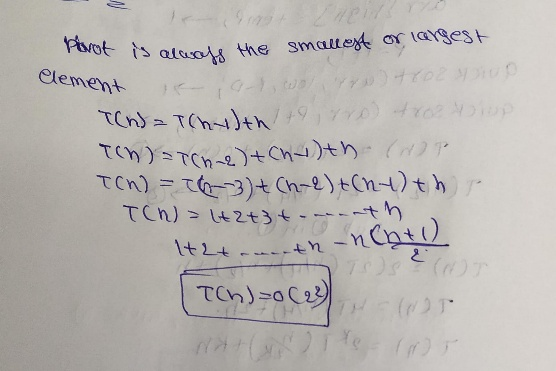 Pivot is always the smallest or largest
element
T(n) = T(n-1)+n
T(n) = T(n-2)+(n-1)+n
T(n) = T(n-3)+(n-2)+(n-1)+n
T(n) = 1+2+3+------+n
1+2+-----+n = n(n+1)/2
T(n)=O(2²)